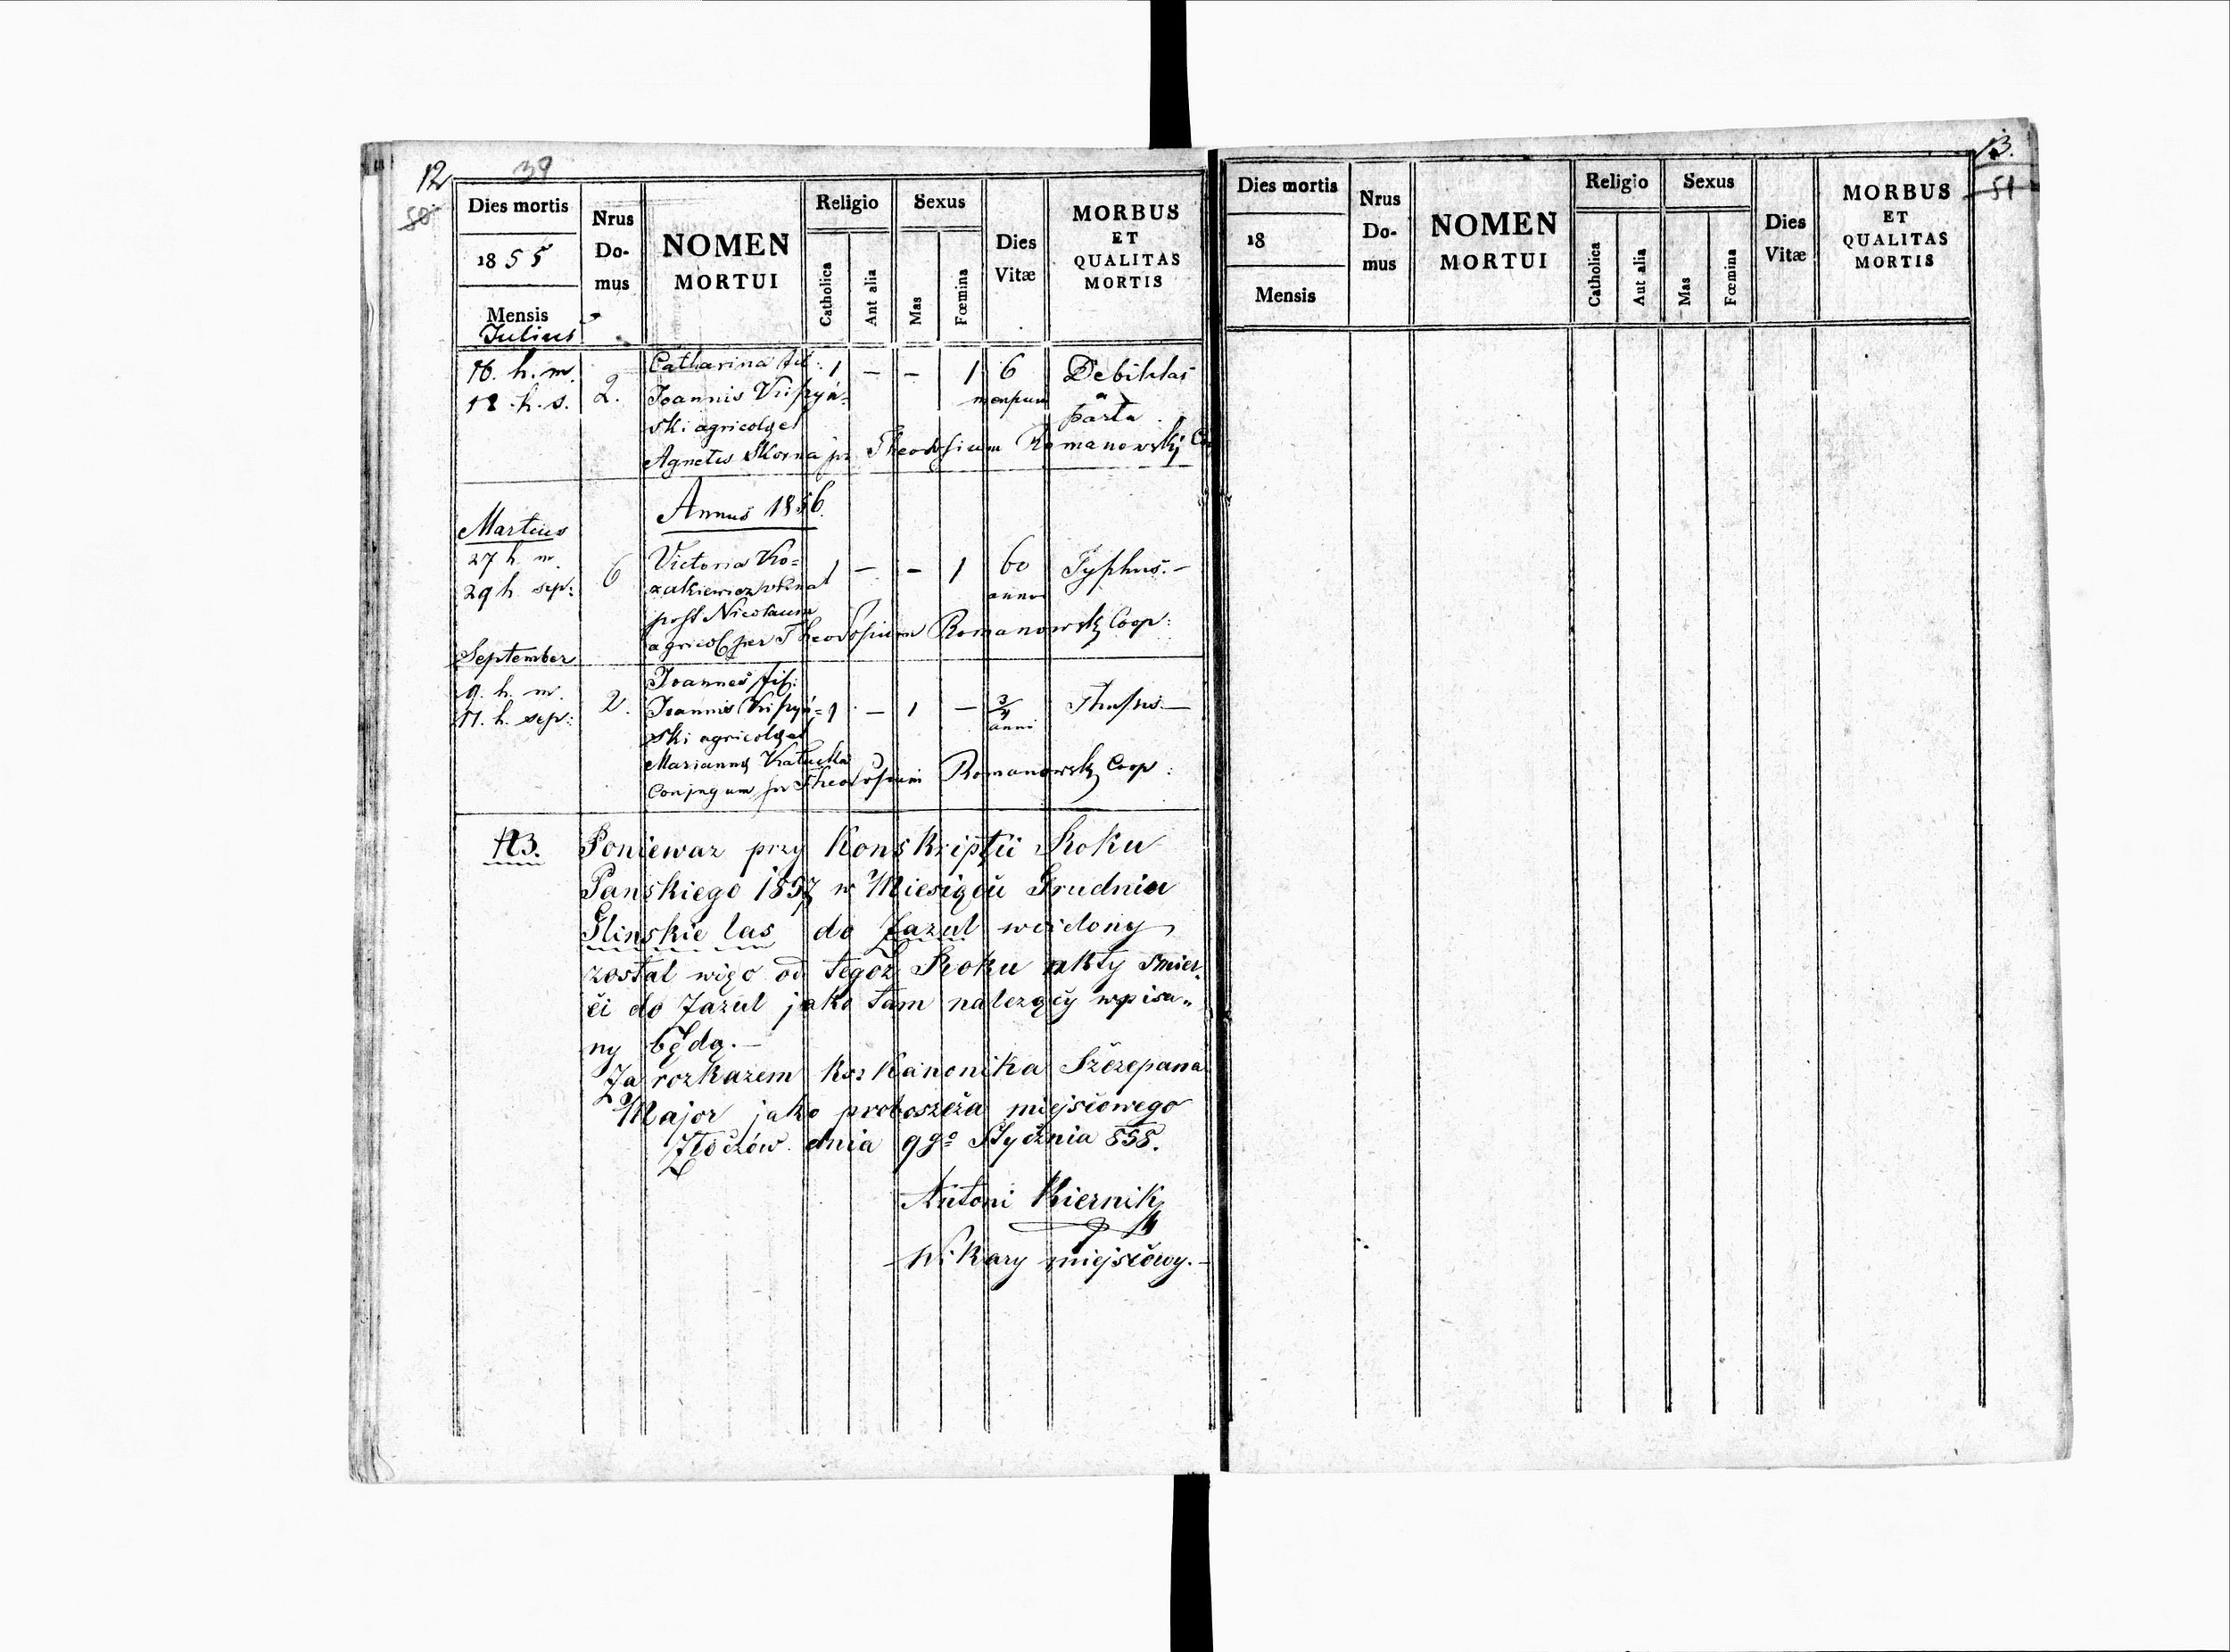 12 39
50
Dies mortis
1855
Mensis
Julius
Nrus
Do-
mus
NOMEN
MORTUI
Religio
Catholica
Aut alia
Sexus
Mas
Fœmina
Dies
Vitæ
MORBUS
ET
QUALITAS
MORTIS
16. h. m. 2. Catharina fil: 1 — — 1 6 Debilitas
18. h. s. Joannis mensium a
ski agricolæ et parta
Agnetis Skorna pr Theodosium Romanowski Co
Annus 1856.
Martius
27 h. m. 6 Victoria Ko= 1 — — 1 60 Typhus. —
29 h. sep: zakiewicz anno
post Nicolaum
agricol per Theodosium Romanowski Coop:
September
9. h. m. 2. Joannes fil: 1 — 1 — 3/4
11. h. sep: Joannis anni
ski agricolæ et
Mariannæ
Conjugum pr Theodosium Romanowski Coop:
NB. Poniewaz przy Konskripcii Roku
Panskiego 1857 w Miesiącu Grudniu
Glinskie las do Zazul wcidony
zostal więc od tegoż Roku akty śmier-
ci do Zazul jako tam należący wpisa„
ny będą. —
Za rozkazem ksz Kanonika Szczepana
Major jako proboszcza miejscowego
Złoczów dnia 9go Stycznia 858.
Antoni Kiernik
Wikary miejscowy. —
13.
51
Dies mortis
18
Mensis
Nrus
Do-
mus
NOMEN
MORTUI
Religio
Catholica
Aut alia
Sexus
Mas
Fœmina
Dies
Vitæ
MORBUS
ET
QUALITAS
MORTIS